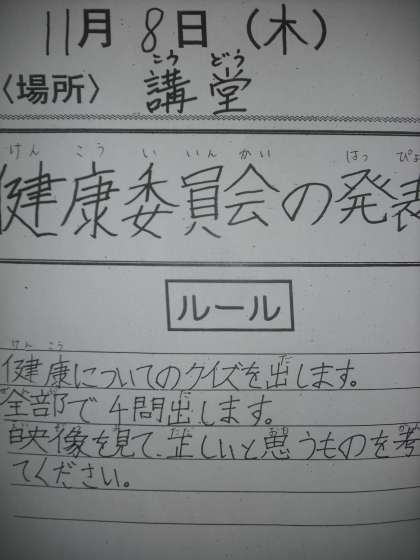 11月8日(木)
こうどう
〈場所〉 講堂
けんこういいんかい はっぴょ
健康委員会の発表
ルール
けんこう だ
健康についてのクイズを出します。
だ
全部で4問出します。
ただ おも
映像を見て、正しいと思うものを考
てください。